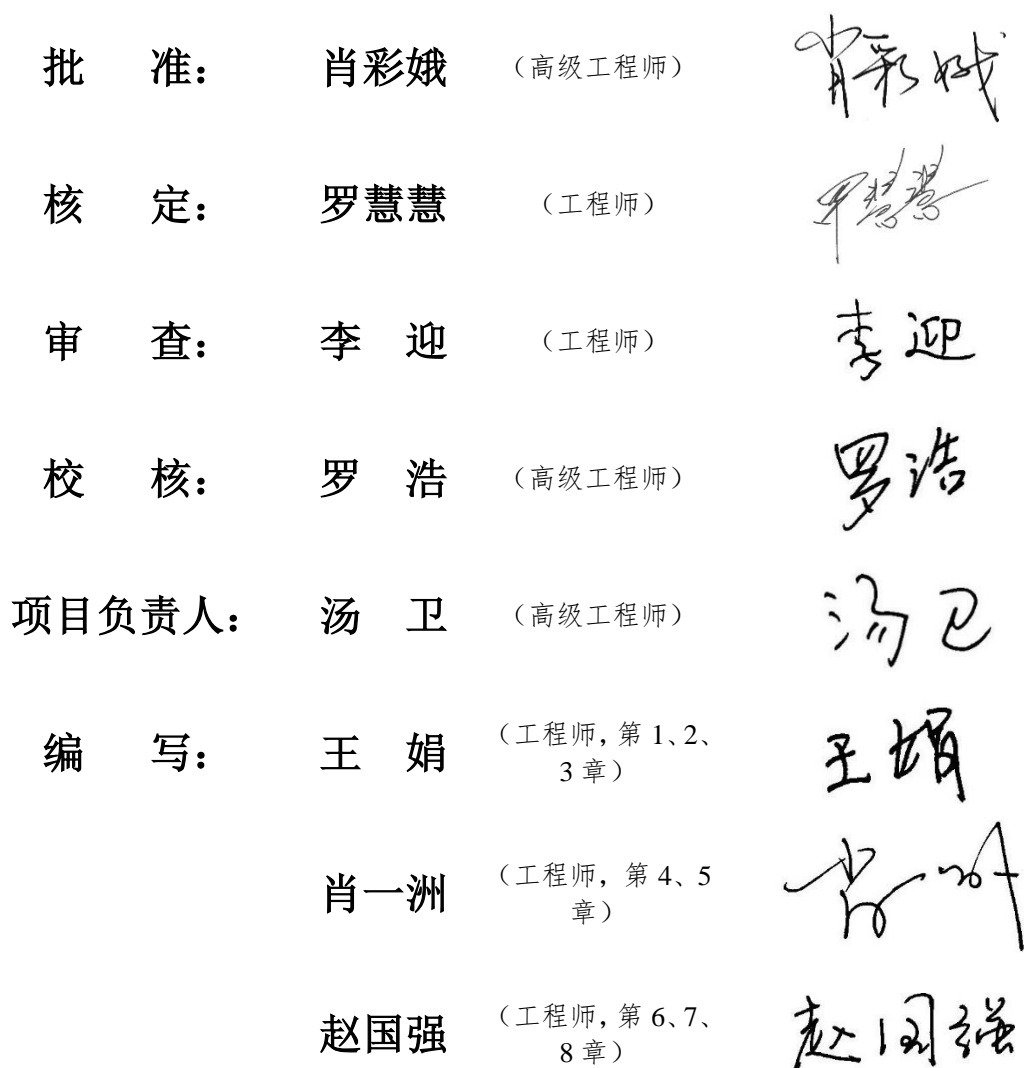 批 准： 肖彩娥 （高级工程师） 肖彩娥
核 定： 罗慧慧 （工程师） 罗慧慧
审 查： 李 迎 （工程师） 李迎
校 核： 罗 浩 （高级工程师） 罗浩
项目负责人： 汤 卫 （高级工程师） 汤卫
编 写： 王 娟 （工程师，第 1、2、
3 章） 王娟
肖一洲 （工程师，第 4、5
章） 肖一洲
赵国强 （工程师，第 6、7、
8 章） 赵国强